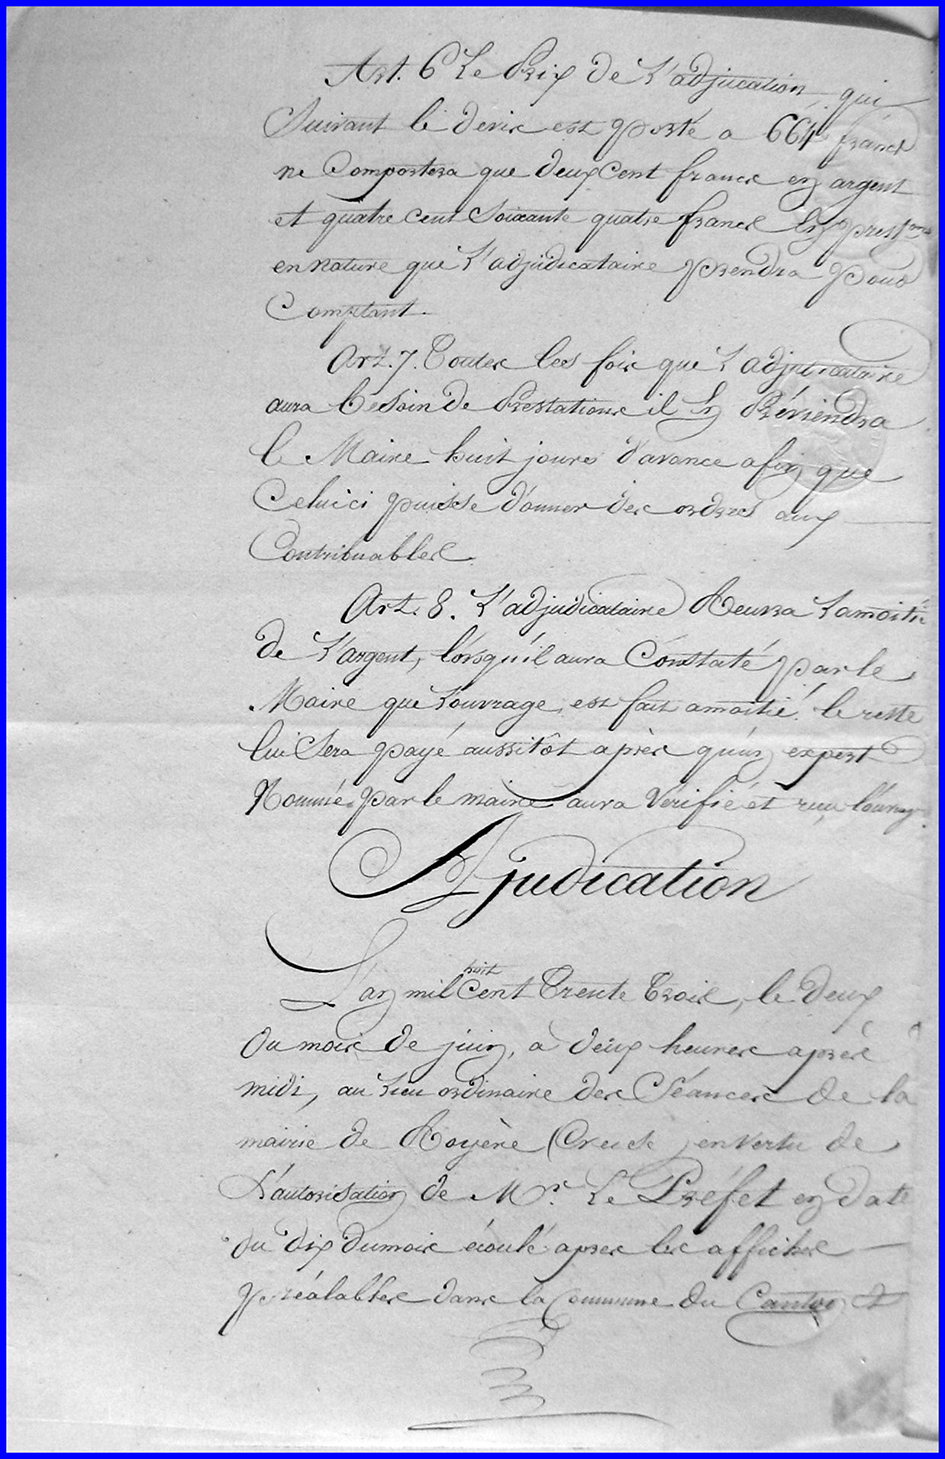 Art. 6 Le Prix de L'adjucation qui
Suivant le devis est porté a 664 francs
ne Comportera que deux Cent francs en argent
et quatre cent Soixante quatre francs En prest.ons
en Nature que L'adjudicataire prendra pour
Comptant.
Art. 7. Toutes les fois que L'adjudicataire
aura besoin de Prestations il En Préviendra
le Maire huit jours d'avance afin que
Celui ci puisse donner des ordres aux
Contribuables.
Art. 8. L'adjudicataire Recevra Lamoitié
de L'argent, lorsqu'il aura Constaté par le
Maire que Louvrage, est fait amoitié. le reste
lui Sera payé aussitôt après qu'un expert
Nommé par le maire aura Vérifié et reçu l'ouvrage.
Adjudication
L'an mil huit Cent Trente Trois, le deux
du mois de juin, a deux heures après
midi, au Lieu ordinaire des Séances de la
mairie de Royère (Creuse) en Vertu de
L'autorisation de Mr. Le Préfet en date
du dix du mois écoulé apres les affiches
préalables dans la Commune du Canton et